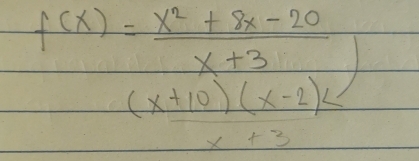 f(x) = x² + 8x - 20
x + 3
(x+10)(x-2)
x + 3